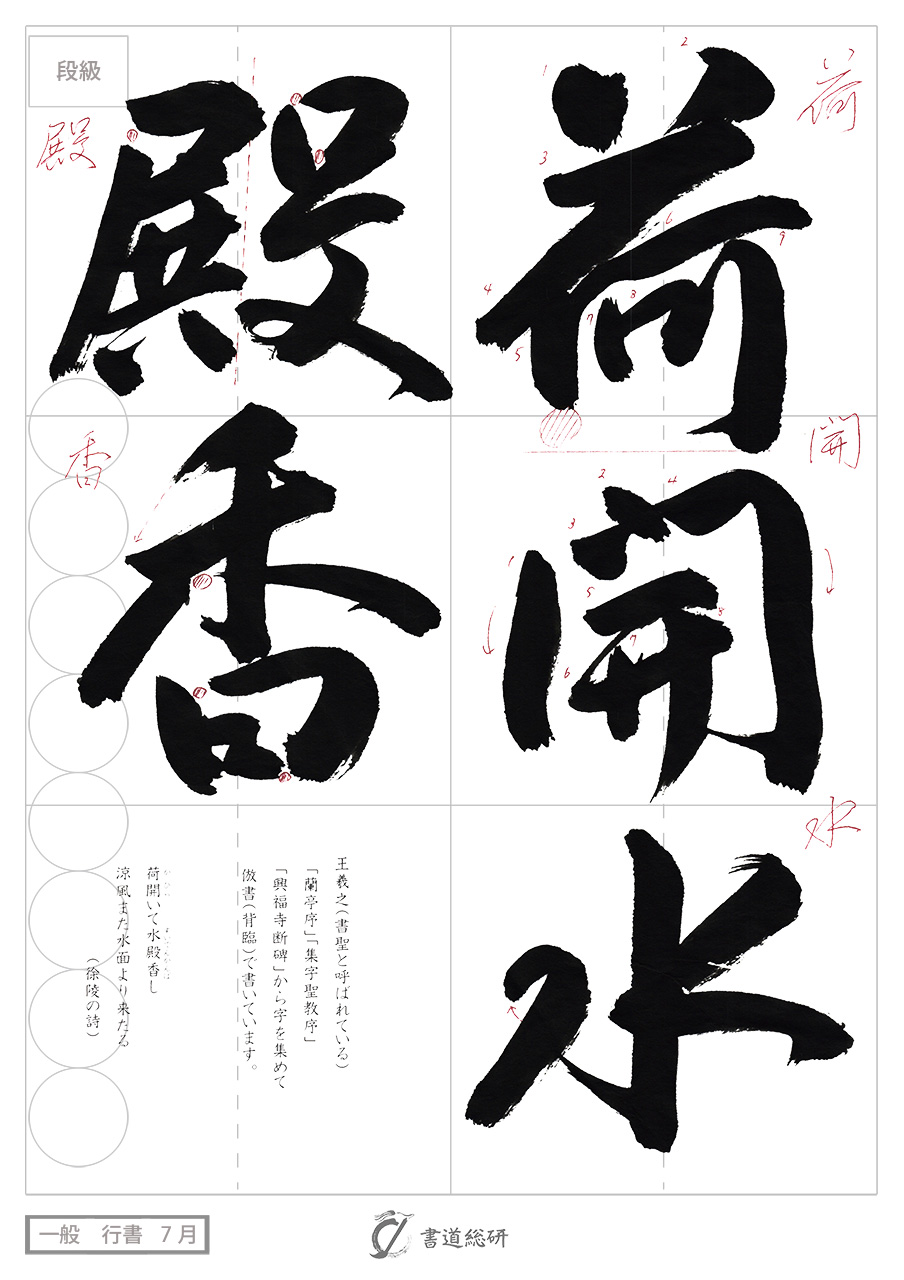 荷開水
殿香
段級
荷
開
水
殿
香
王羲之(書聖と呼ばれている)
「蘭亭序」「集字聖教序」
「興福寺断碑」から字を集めて
倣書(背臨)で書いています。
荷開いて水殿香し
涼風また水面より来たる
(徐陵の詩)
1
2
3
4
5
6
7
8
9
1
2
3
4
5
6
7
8
一般 行書 7月
書道総研